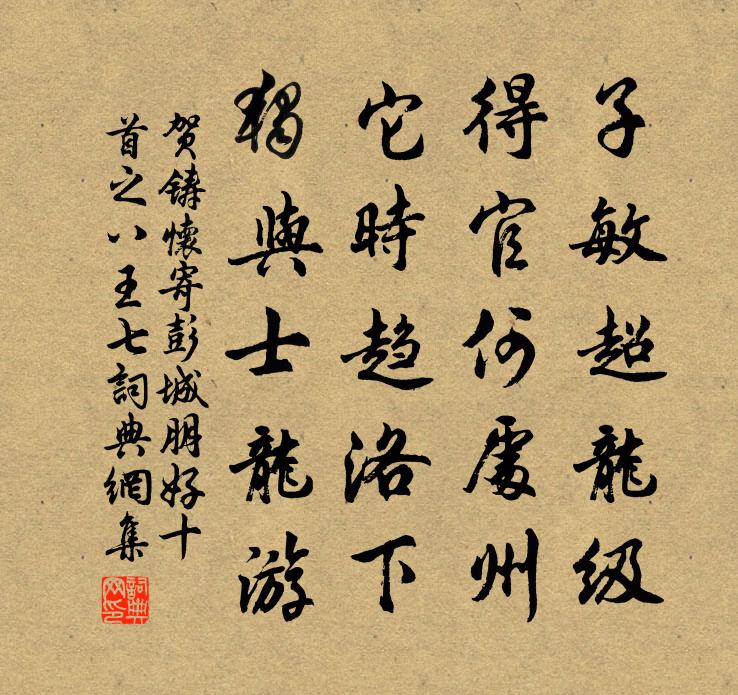 子敏超龍级
得官何處州
它時趋洛下
獨與士龍游
贺鑄懷寄彭城朋好十
首之八王七詞典網集
詞典
网印